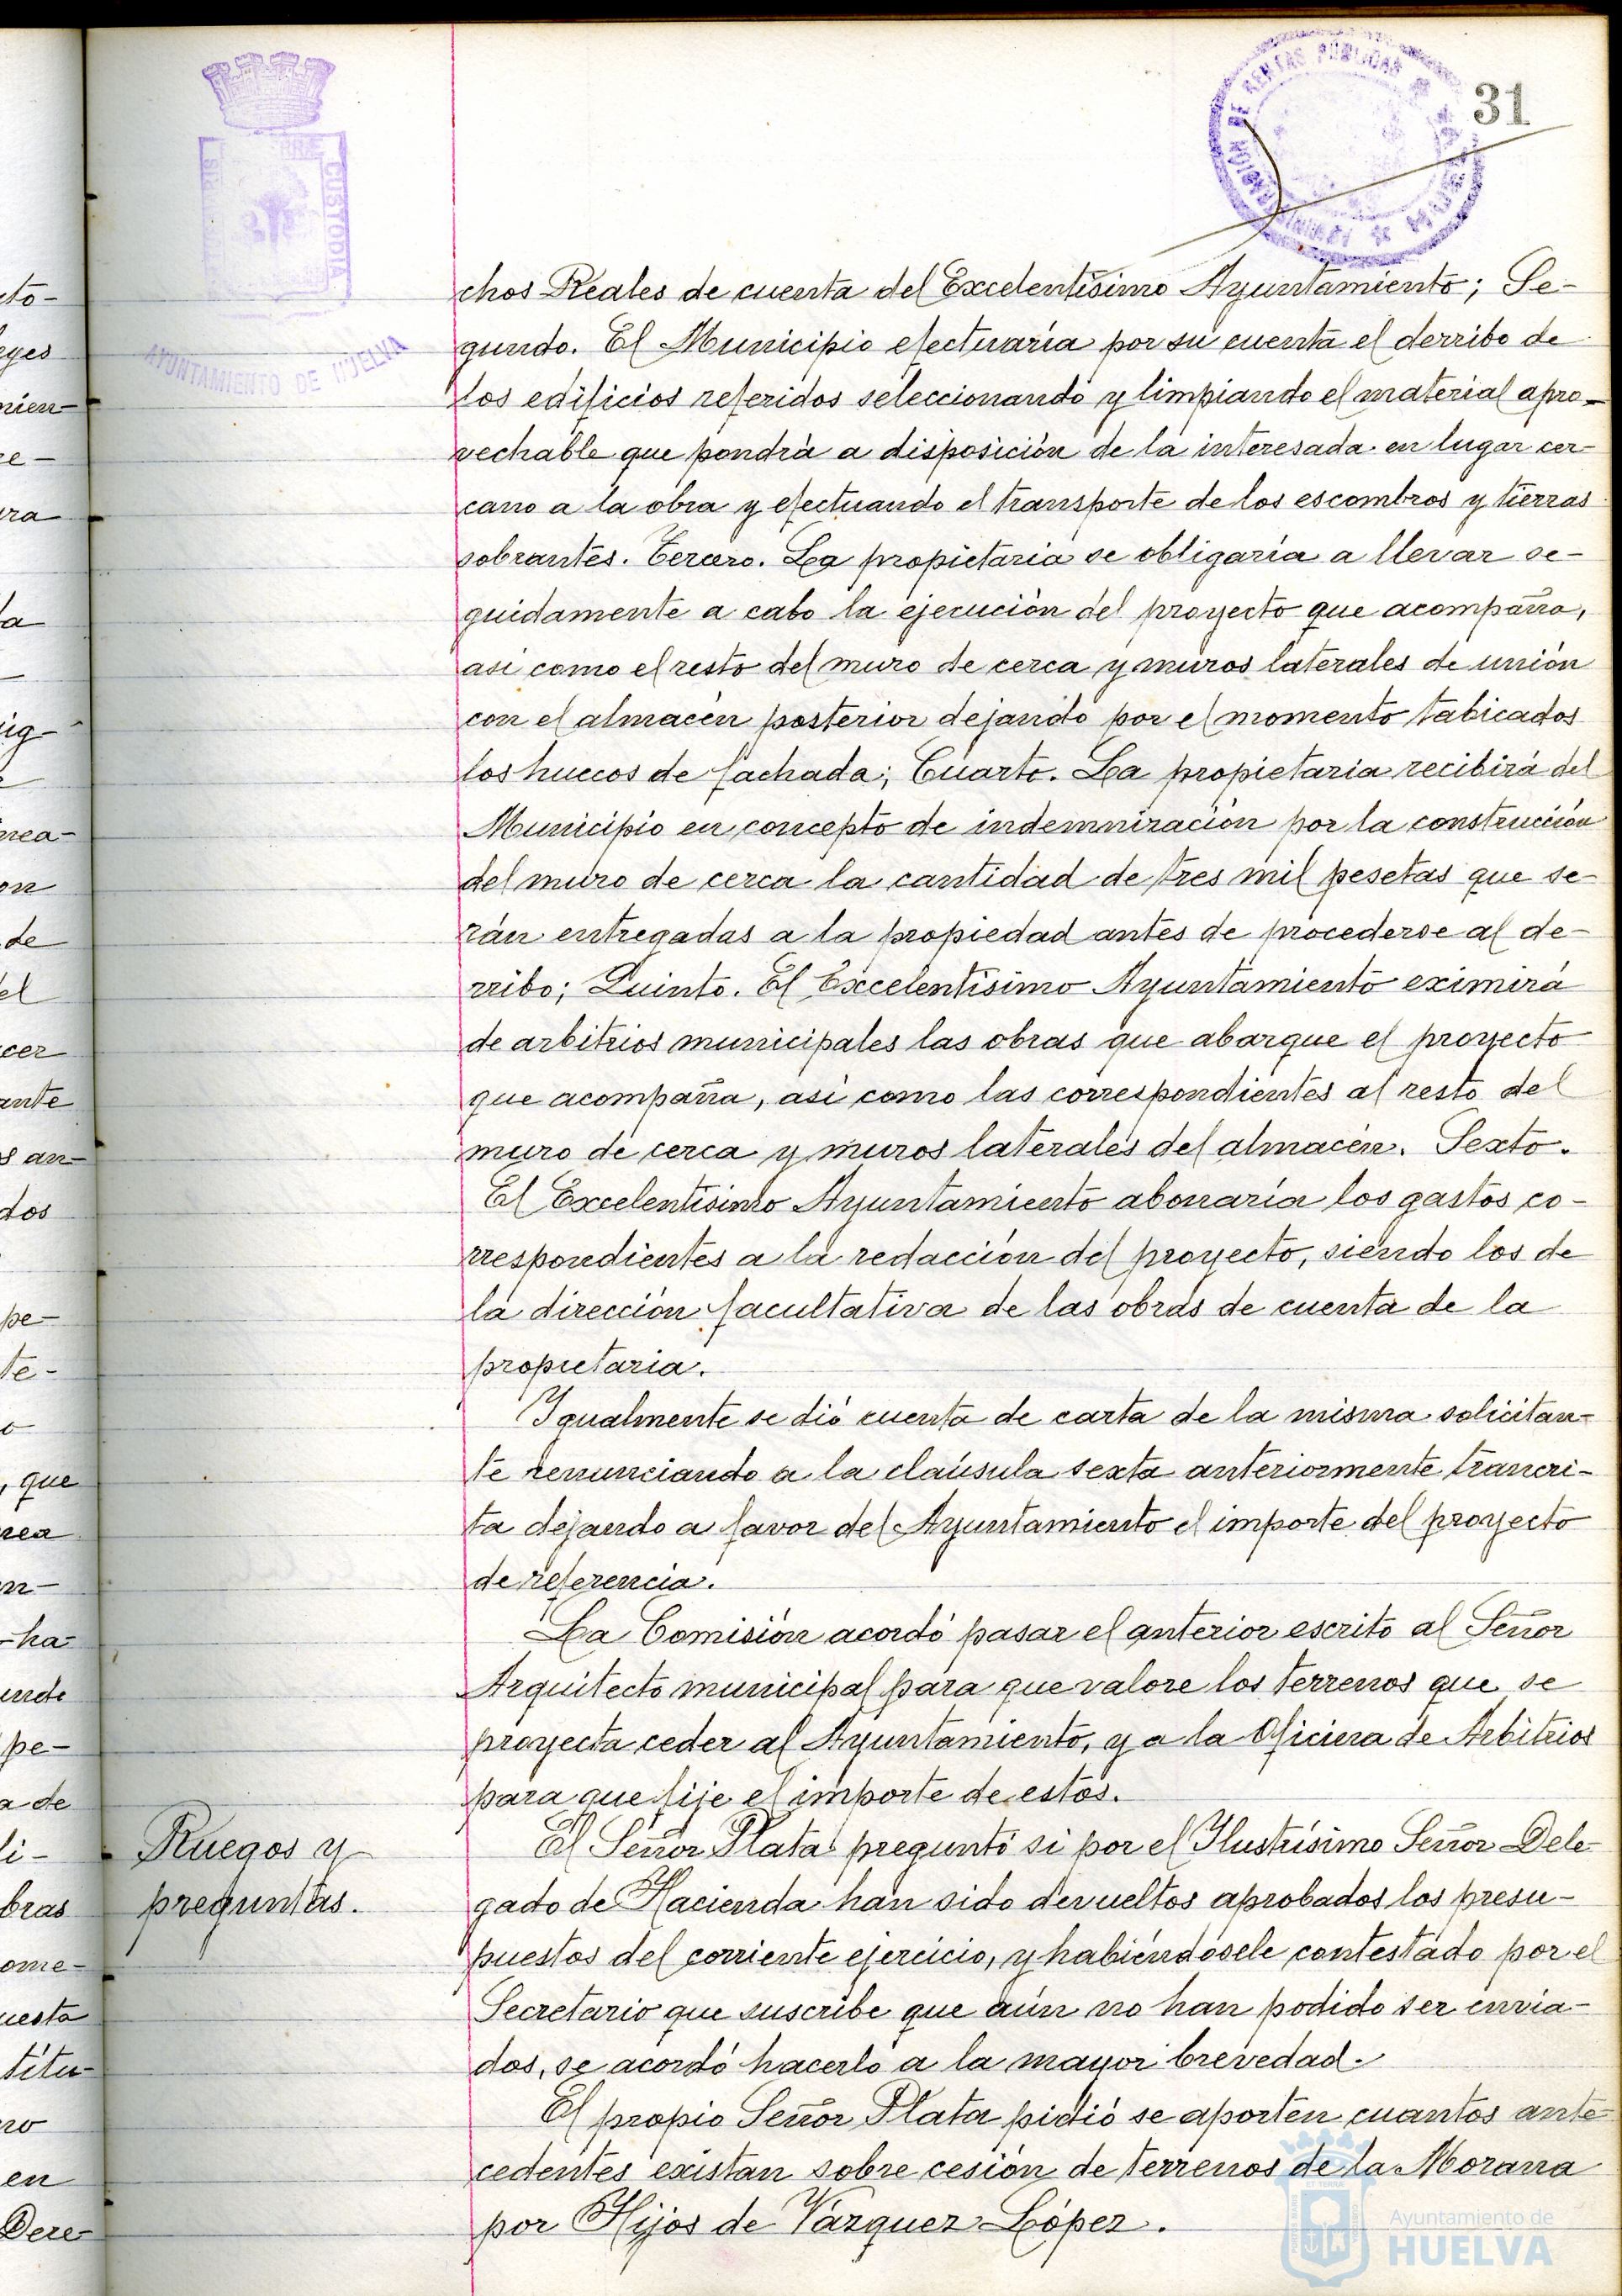 31
chos Reales de cuenta del Excelentísimo Ayuntamiento; Se-
gundo. El Municipio efectuaría por su cuenta el derribo de
los edificios referidos seleccionando y limpiando el material apro-
vechable que pondrá a disposición de la interesada en lugar cer-
cano a la obra y efectuando el transporte de los escombros y tierras
sobrantes. Tercero. La propietaria se obligaría a llevar se-
guidamente a cabo la ejecución del proyecto que acompaña,
asi como el resto del muro de cerca y muros laterales de unión
con el almacén posterior dejando por el momento tabicados
los huecos de fachada; Cuarto. La propietaria recibirá del
Municipio en concepto de indemnización por la construcción
del muro de cerca la cantidad de tres mil pesetas que se-
rán entregadas a la propiedad antes de procederse al de-
rribo; Quinto. El Excelentísimo Ayuntamiento eximirá
de arbitrios municipales las obras que abarque el proyecto
que acompaña, asi como las correspondientes al resto del
muro de cerca y muros laterales del almacén. Sexto.
El Excelentísimo Ayuntamiento abonaría los gastos co-
rrespondientes a la redacción del proyecto, siendo los de
la dirección facultativa de las obras de cuenta de la
propietaria.
Igualmente se dió cuenta de carta de la misma solicitan-
te renunciando a la claúsula sexta anteriormente trancri-
ta dejando a favor del Ayuntamiento el importe del proyecto
de referencia.
La Comisión acordó pasar el anterior escrito al Señor
Arquitecto municipal para que valore los terrenos que se
proyecta ceder al Ayuntamiento, y a la Oficina de Arbitrios
para que fije el importe de estos.
Ruegos y
preguntas.
El Señor Plata preguntó si por el Ilustrísimo Señor Dele-
gado de Hacienda han sido devueltos aprobados los presu-
puestos del corriente ejercicio, y habiéndosele contestado por el
Secretario que suscribe que aún no han podido ser envia-
dos, se acordó hacerlo a la mayor brevedad.
El propio Señor Plata pidió se aporten cuantos ante-
cedentes existan sobre cesión de terrenos de la Morana
por Hijos de Vázquez López.
CUSTODIA
AYUNTAMIENTO DE HUELVA
DE RENTAS PÚBLICAS
Ayuntamiento de
HUELVA